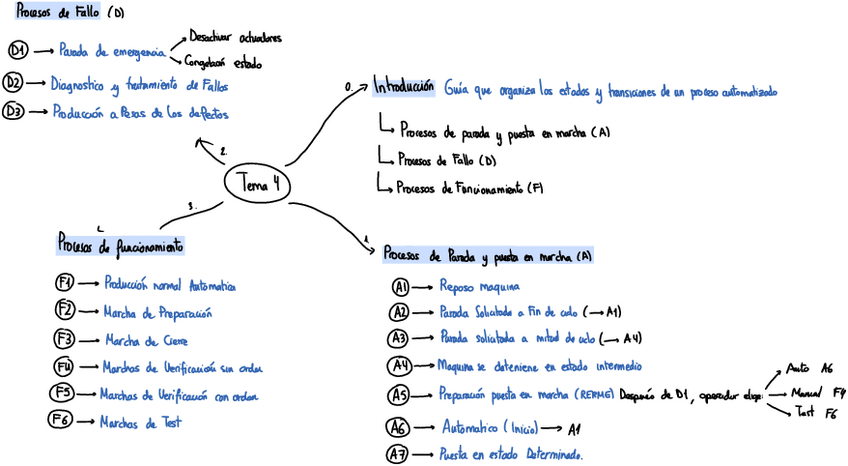 Procesos de Fallo (D)
D1 → Parada de emergencia
Desactivar actuadores
Congelación estado
D2 → Diagnostico y tratamiento de Fallos
D3 → Producción a Pesar de los defectos
0. Introducción Guía que organiza los estados y transiciones de un proceso automatizado
Procesos de parada y puesta en marcha (A)
Procesos de Fallo (D)
Procesos de Funcionamiento (F)
2.
Tema 4
3.
1.
Procesos de funcionamiento
F1 → Producción normal Automatica
F2 → Marcha de Preparación
F3 → Marcha de Cierre
F4 → Marchas de Verificación sin orden
F5 → Marchas de Verificación con orden
F6 → Marchas de Test
Procesos de Parada y puesta en marcha (A)
A1 → Reposo maquina
A2 → Parada Solicitada a Fin de ciclo (→ A1)
A3 → Parada solicitada a mitad de ciclo (→ A4)
A4 → Maquina se deteniene en estado intermedio
A5 → Preparación puesta en marcha (REARME) Después de D1, operador elige:
Auto A6
Manual F4
Test F6
A6 → Automatico (Inicio) → A1
A7 → Puesta en estado Determinado.